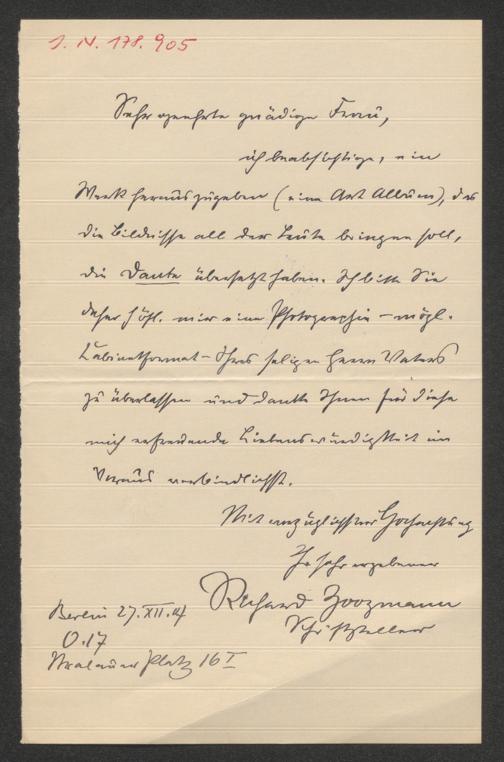 J. N. 178.905
Sehr geehrte gnädige Frau,
ich beabsichtige, ein
Werk herauszugeben (eine Art Album), das
die Bildnisse all der Leute bringen soll,
die Dante übersetzt haben. Ich bitte Sie
daher höfl. mir eine Photographie – mögl.
Cabinetformat – Ihres seligen Herrn Vaters
zu überlassen und danke Ihnen für diese
mich erfreuende Liebenswürdigkeit im
Voraus verbindlichst.
Mit vorzüglichster Hochachtung
Ihr sehr ergebener
Richard Zoozmann
Schriftsteller
Berlin 27.XII.
O.17
Stralauer Platz 16 I